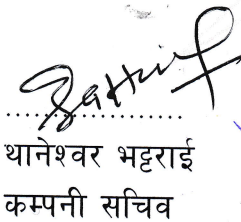 थानेश्वर भट्टराई
कम्पनी सचिव